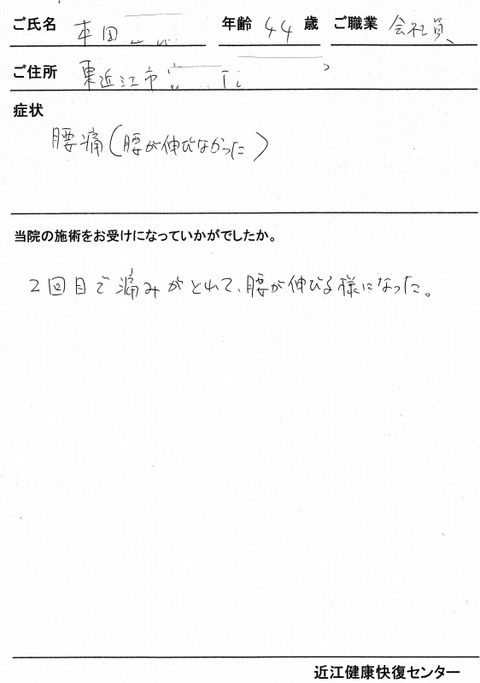 ご氏名 本田 年齢 44 歳 ご職業 会社員
ご住所 東近江市
症状
腰痛(腰が伸びなかった)
当院の施術をお受けになっていかがでしたか。
2回目で痛みがとれて、腰が伸びる様になった。
近江健康快復センター